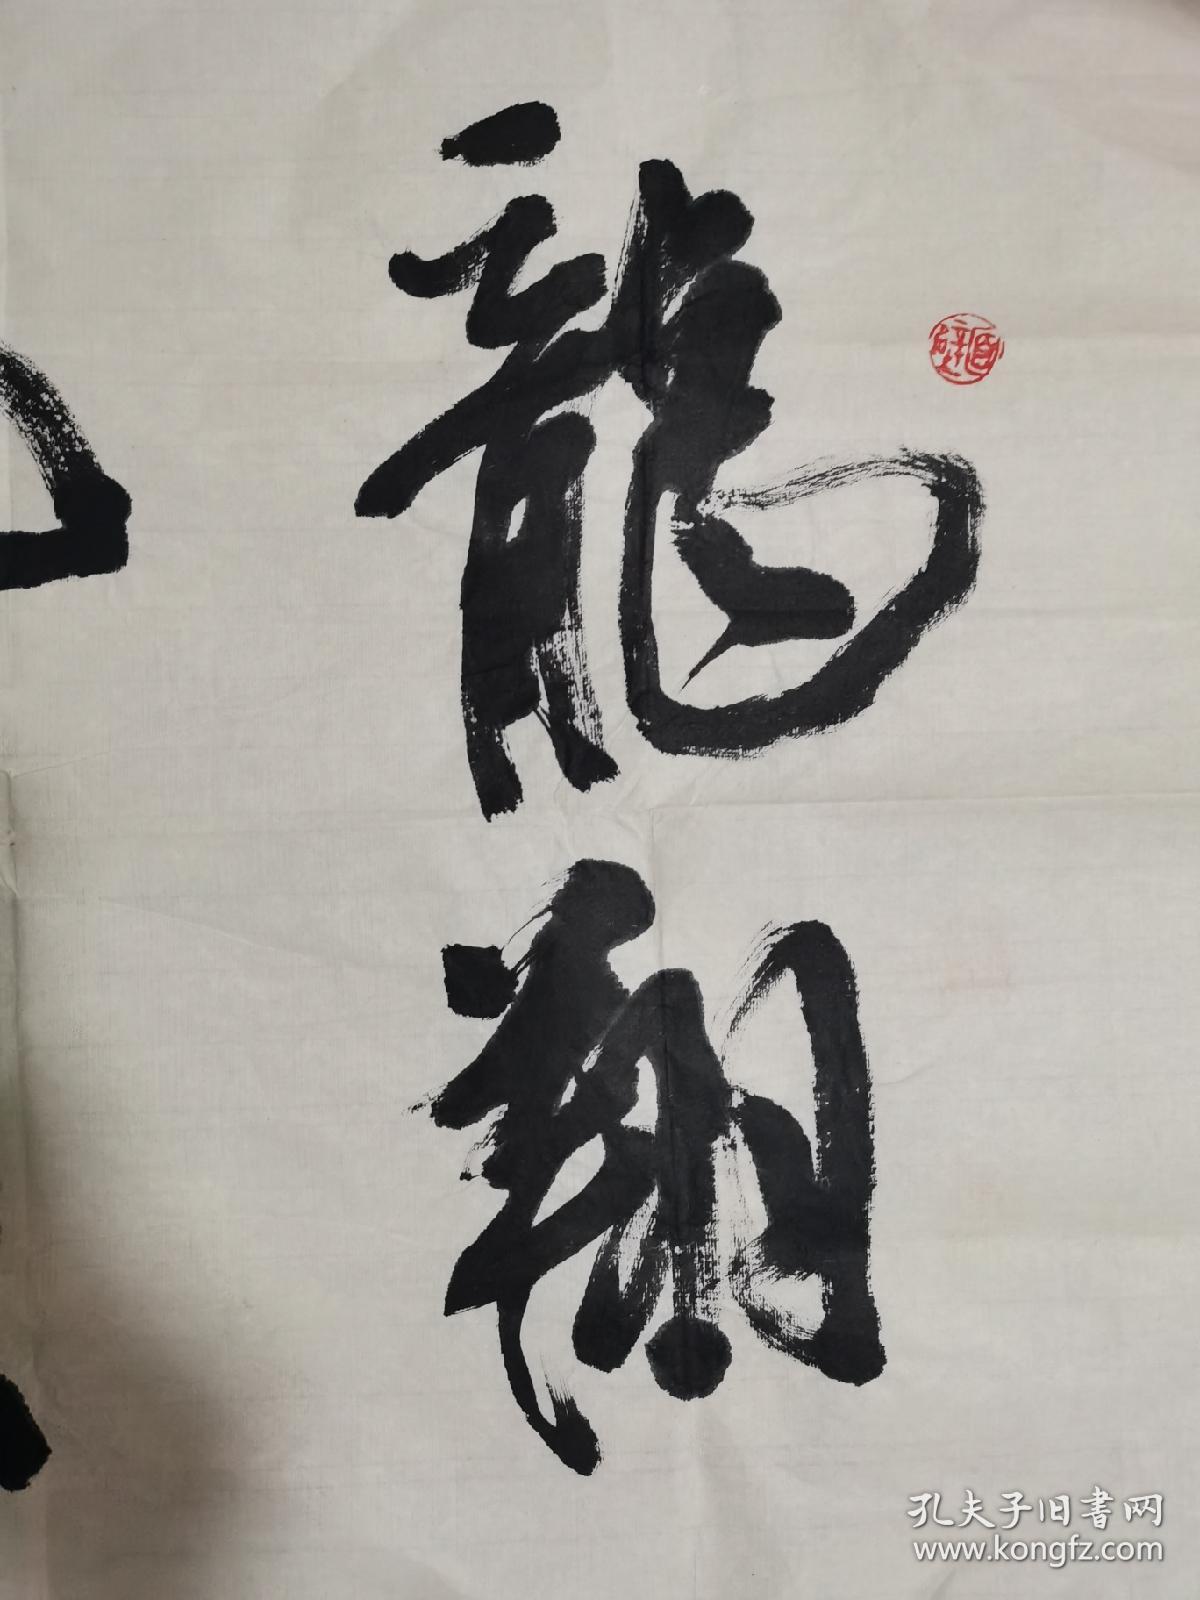 龍翔
孔夫子旧書网
www.kongfz.com